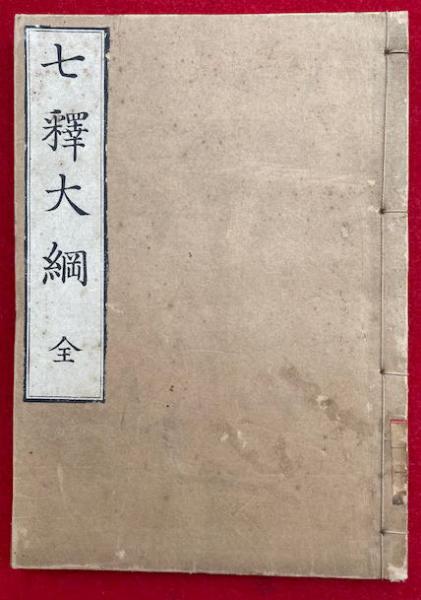 七釋大綱 全